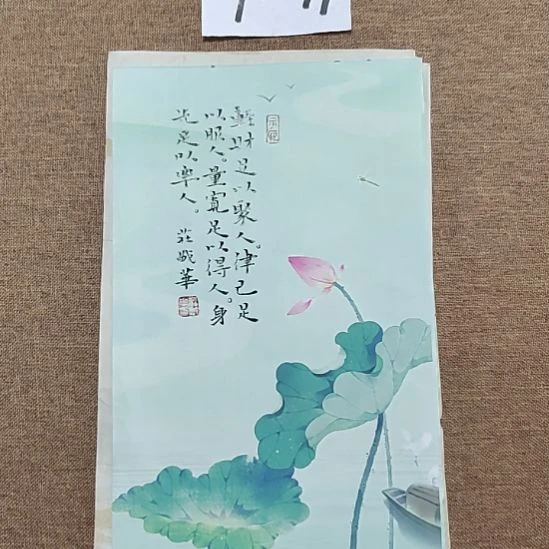 輕財足以聚人。律己足
以服人。量寬足以得人。身
先足以率人。
莊
華